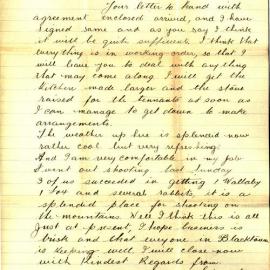 Your letter to hand with
agreement enclosed arrived, and I have
signed same and as you say I think
it will be quite sufficient, I think that
everything is in working order, so that I
will leave you to deal with anything
that may come along I will get the
kitchen made larger and the stove
raised for the tennants as soon as
I can manage to get down to make
arrangements.
The weather up here is splendid now
rather cool but very refreshing
And I am very comfortable in my job
I went out shooting last Sunday
3 of us succeeded in getting 1 Wallaby
1 Joy and several rabbits, it is a
splendid place for shooting on
the mountains. Well I think this is all
just at present, I hope business is
brisk and that everyone in Blacktown
is keeping well, I will close now
with Kindest Regards from